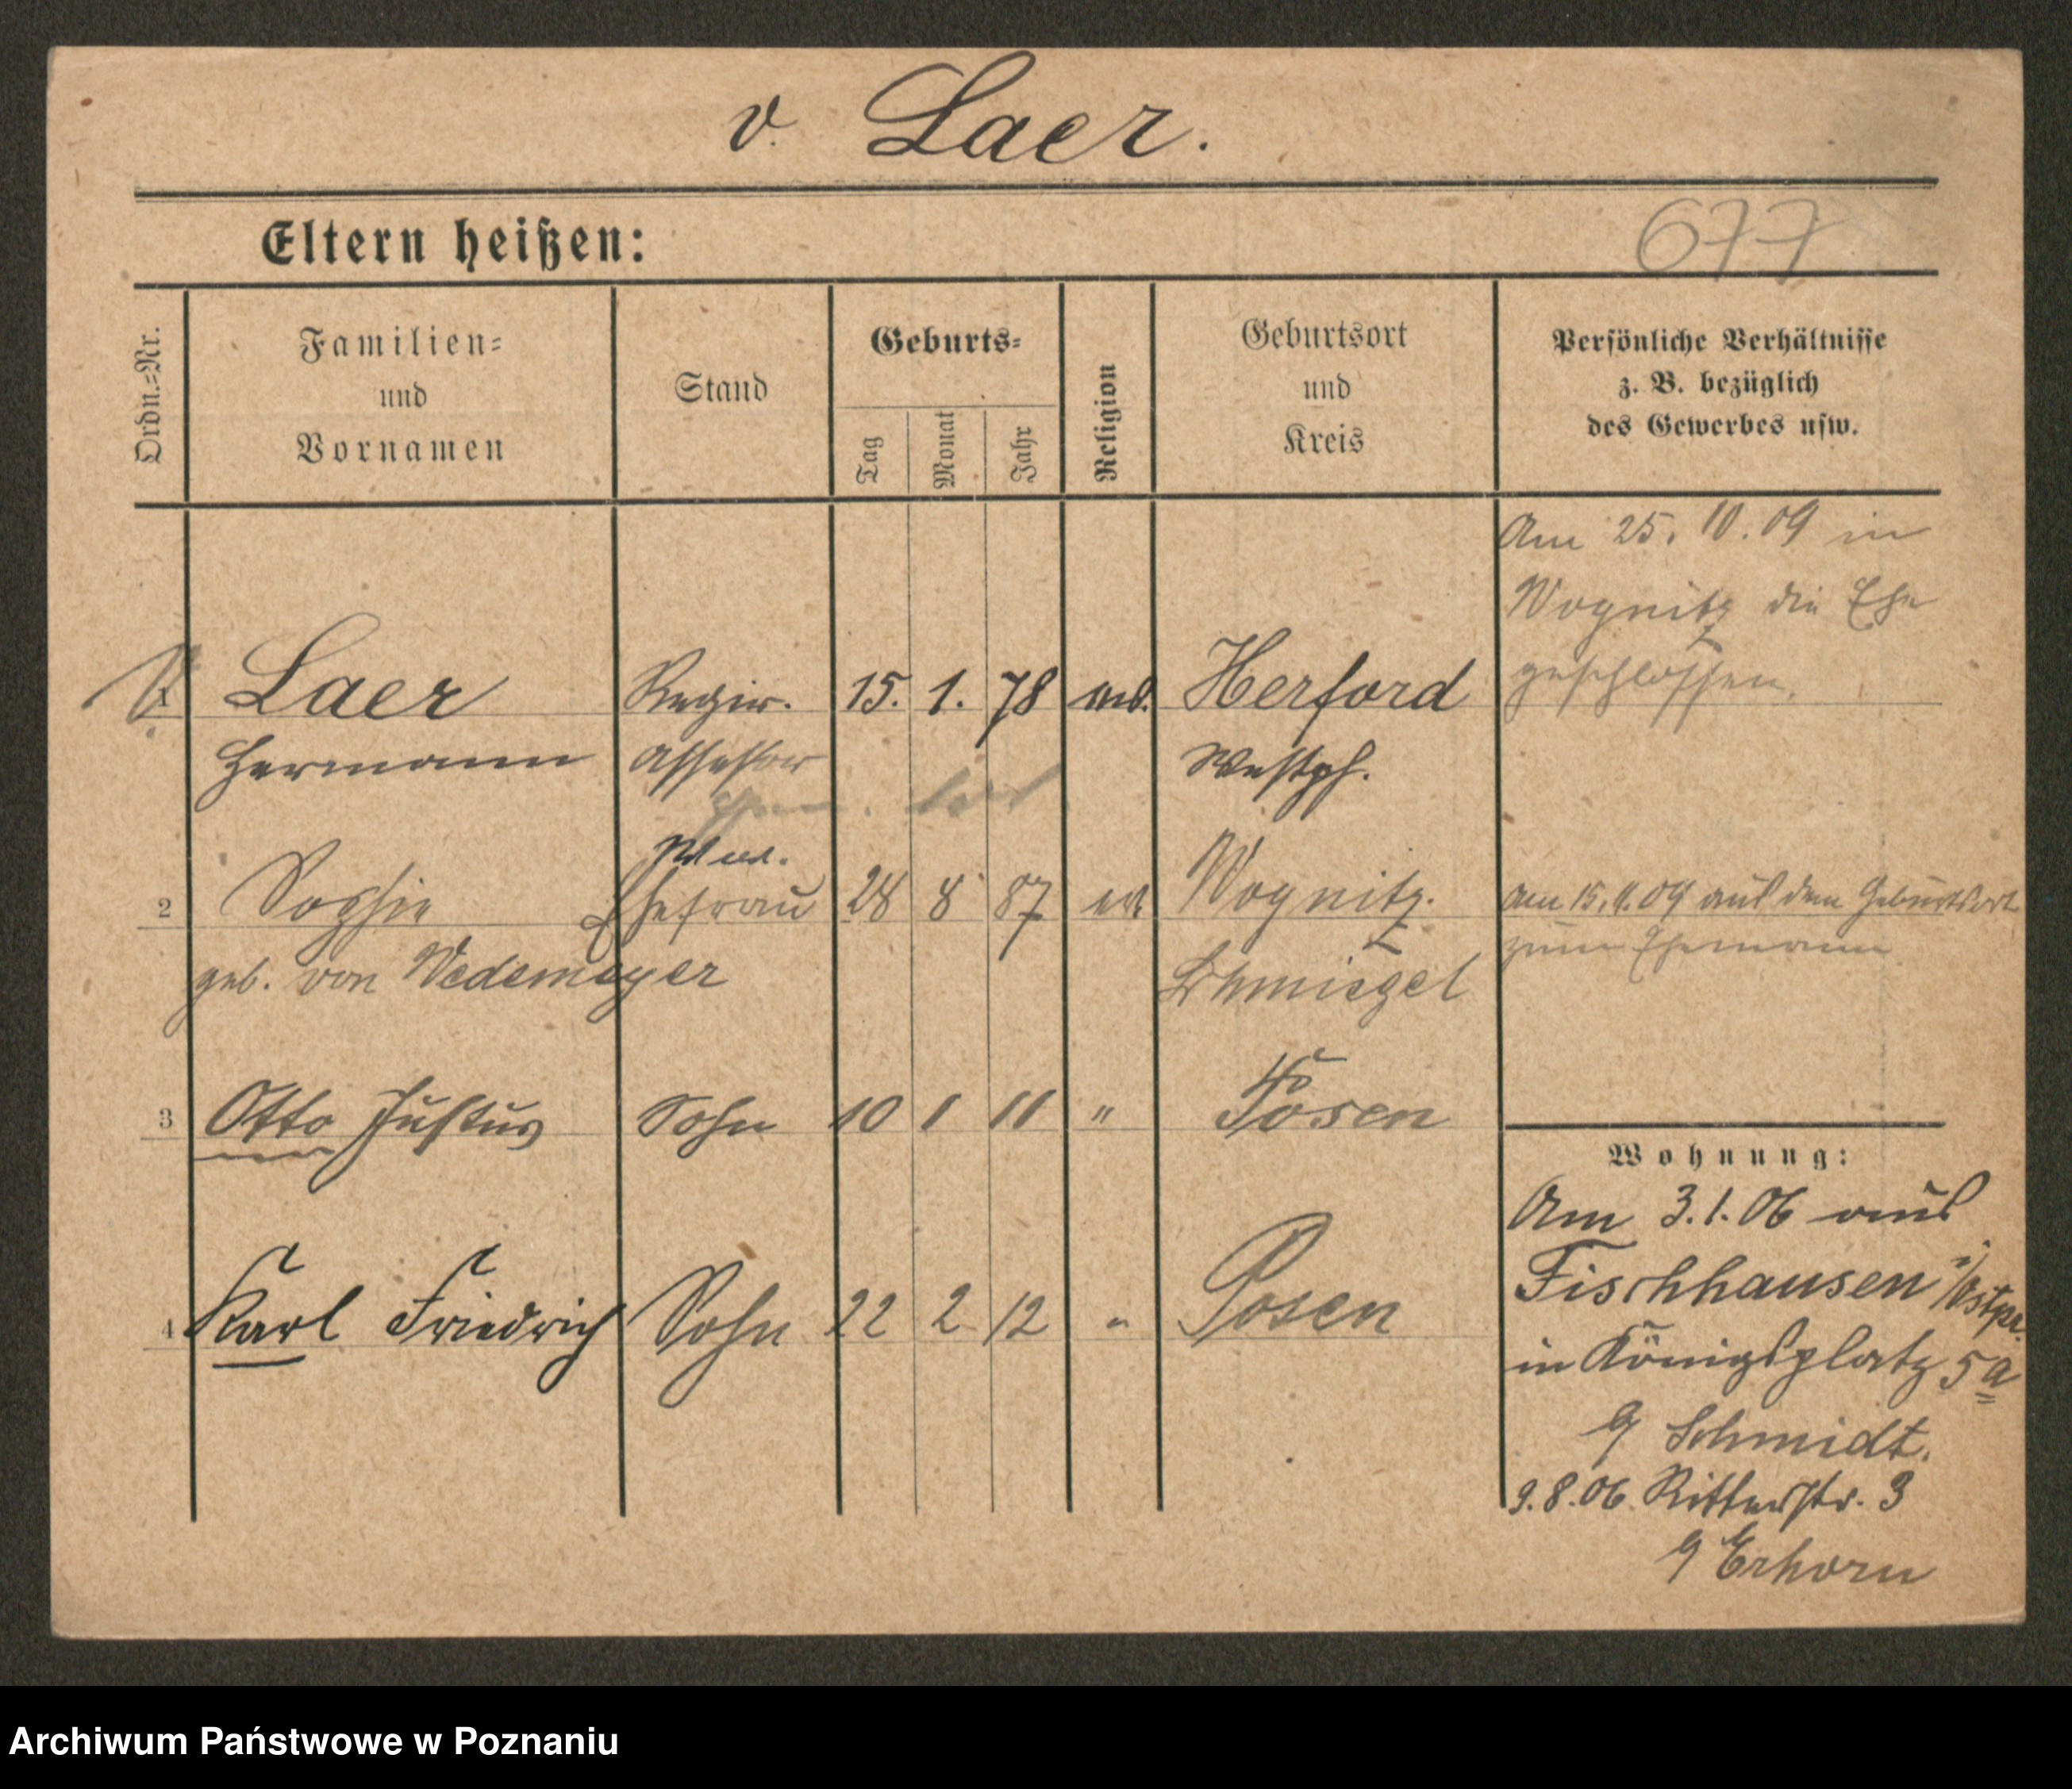 v. Laer.
Eltern heißen:
677
Ordn.=Nr.
Familien=
und
Vornamen
Stand
Geburts=
Tag
Monat
Jahr
Religion
Geburtsort
und
Kreis
Persönliche Verhältnisse
z. B. bezüglich
des Gewerbes usw.
Am 25. 10. 09 in
Wognitz die Ehe
geschlossen.
1 Laer Regier. 15. 1. 78 Herford
Hermann Assessor Westph.
Wwe.
2 Sophie Ehefrau 28 8 87 Wognitz.
geb. von Wedemeyer Schmiegel
Am 15.11.09 aus dem Geburtsort
zum Ehemann
3 Otto Justus Sohn 10 1 11 " Posen
4 Karl Friedrich Sohn 22 2 12 " Posen
Wohnung:
Am 3.1.06 aus
Fischhausen i/Ostpr.
in Königsplatz 5a
b/ Schmidt.
9.8.06 Ritterstr. 3
b/ Erhorn
Archiwum Państwowe w Poznaniu